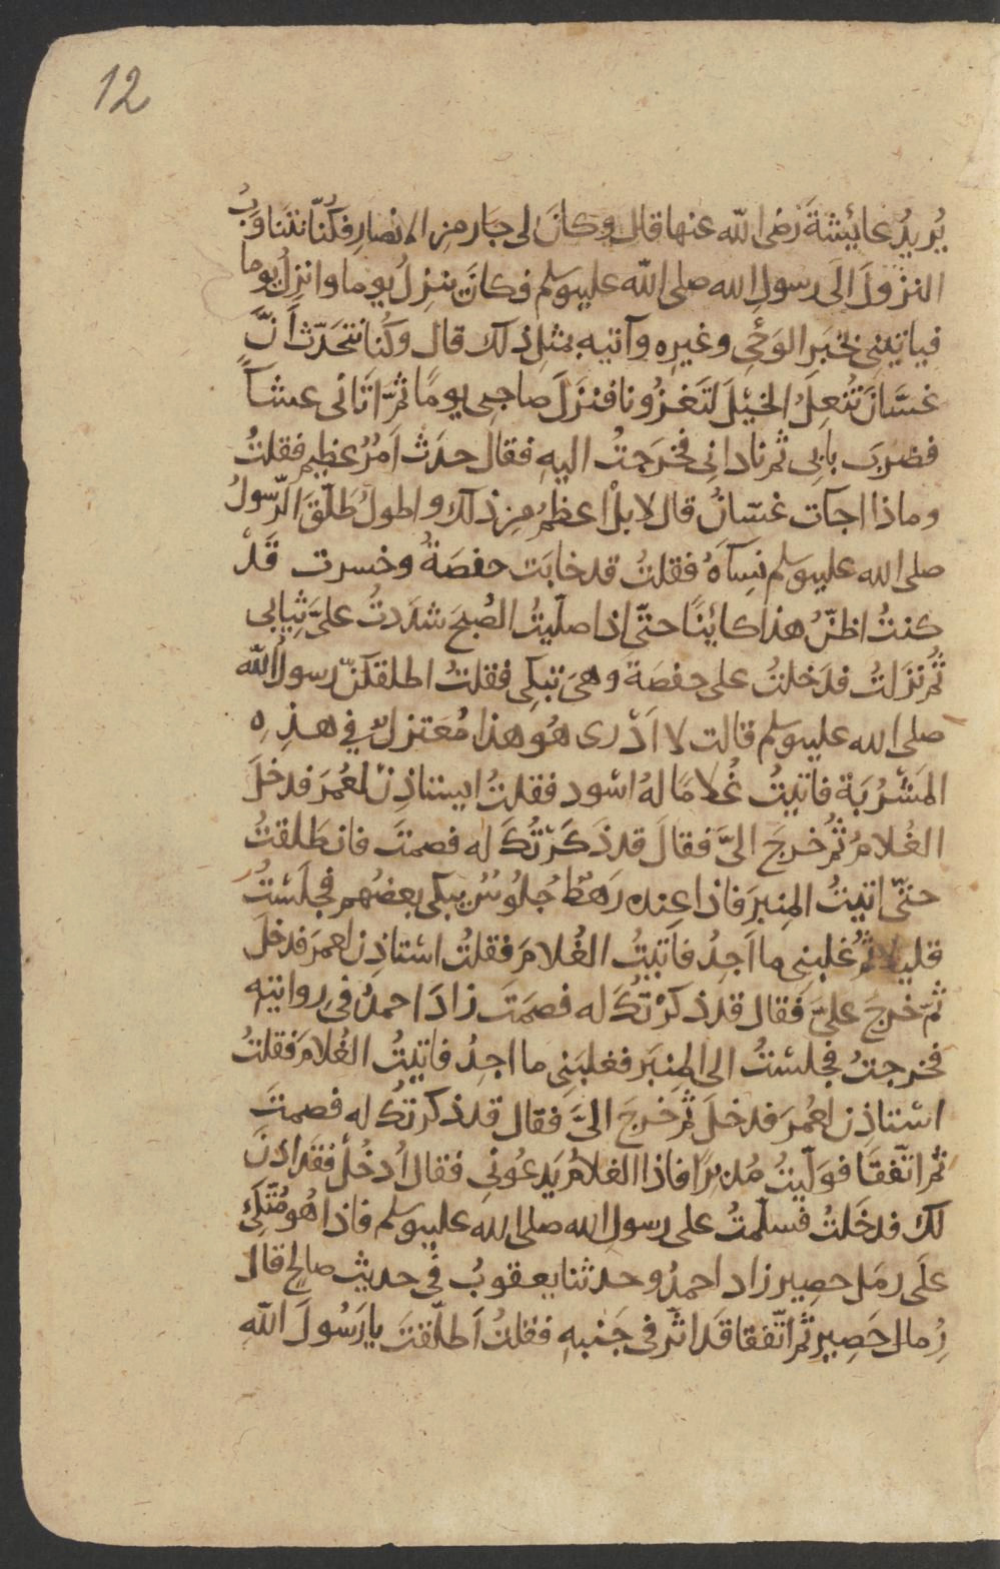 12
يُريدُ عائيشةَ رَضى الله عنها قال وكانَ لى جارٌ مِن الانصارِ فكُنّا نتنَاوَبُ
النزولَ إلَى رسولِ الله صلى الله عليه وسلم فكانَ ينزِلُ يوما وانزِلُ يوما
فياتينى بخَبَرِ الوَحْىِ وغيرِه وآتيه بمثلِ ذلك قال وكُنا نتحَدّث اَنَّ
غسّانَ تُنعِلُ الخيْلَ لتَغزُونا فنزَلَ صاحبى يومًا ثمّ اتَانى عشآً
فضربَ بابى ثم نادانى فخرَجتُ اليهِ فقال حدَث اَمْرٌ عظيم فقلتُ
وماذا اجآت غسّانُ قال لا بلْ اعظمُ مِن ذلك واطولُ طَلّقَ الرّسولُ
صلى الله عليه وسلم نسآهُ فقلتُ قد خابَت حفصَةُ وخسرت قَدْ
كنتُ اظنّ هذا كائِنًا حتّى اذا صلّيتُ الصُبحَ شدَدتُ علىَّ ثِيابى
ثُم نَزَلتُ فدَخلتُ على حفصَةَ وهىَ تبكِى فقلتُ اطلقكنّ رسولُ الله
صلى الله عليه وسلم قالت لا اَدْرى هُو هذا مُعَتزلٌ فى هذِه
المَشْرُبَة فاتيتُ غُلامًا لهُ اسْود فقلتُ ايستاذِنْ لعُمَرَ فدخلَ
الغُلامُ ثُم خرجَ الىَّ فقالَ قد ذَكَرْتُكَ له فصمتَ فانطَلقتُ
حتّى اتيتُ المِنبرَ فاذا عِنده رَهطٌ جُلُوسٌ يبكى بعضُهم فجلَسْتُ
قليلا ثُم غلبنِى ما اَجِدُ فاتَيتُ الغُلامَ فقلتُ استاذِن لعمرَ فدخلَ
ثمّ خرجَ علىَّ فقال قد ذكرْتُكَ له فصمَتَ زادَ احمدُ فى روايتِه
فخرجتُ فجلستُ الى المِنبَرِ فغلبَنِى ما اجِدُ فاتيتُ الغُلامَ فقلتُ
استاذِن لعُمرَ فدخلَ ثم خرجَ الىَّ فقال قد ذكرتُك له فصمتَ
ثم اتّفقَا فوَلّيتُ مُدْبِرًا فاذا الغلامُ يَدعُونى فقال اُدخُلْ فقَد اذنَ
لك فدخَلتُ فسلّمتُ على رسولِ الله صلى الله عليه وسلم فاذا هُو مُتّكِئ
علَى رمَلِ حصِير زاد احمدُ وحدثنا يعقوبُ فى حديث صالح قال
رُمال حَصِير ثم اتّفقا قَد اثّر فى جَنبهِ فقلتُ اَطلّقتَ يا رَسُولَ الله